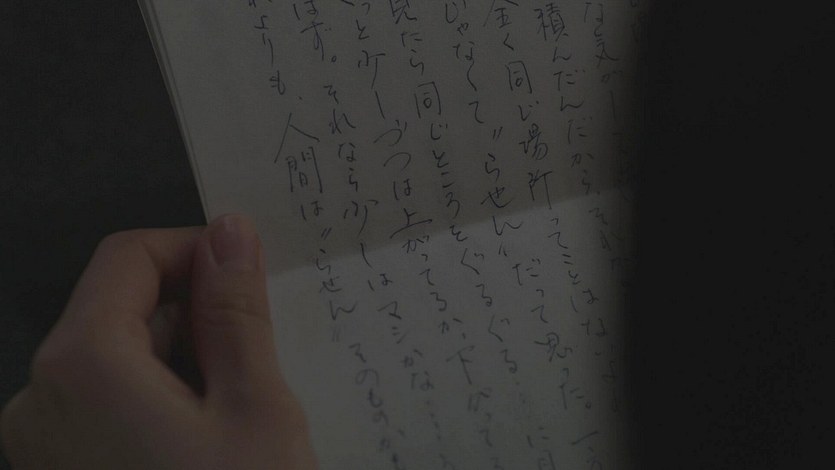 な気がし
積んだんだから、それな
全く同じ場所ってことはない
じゃなくて〝らせん〟だって思った。一
見たら同じところをぐるぐる
っと少しづつは上がってるか、下がってる
はず。それなら少しはマシかな……
れよりも、人間は〝らせん〟そのものか